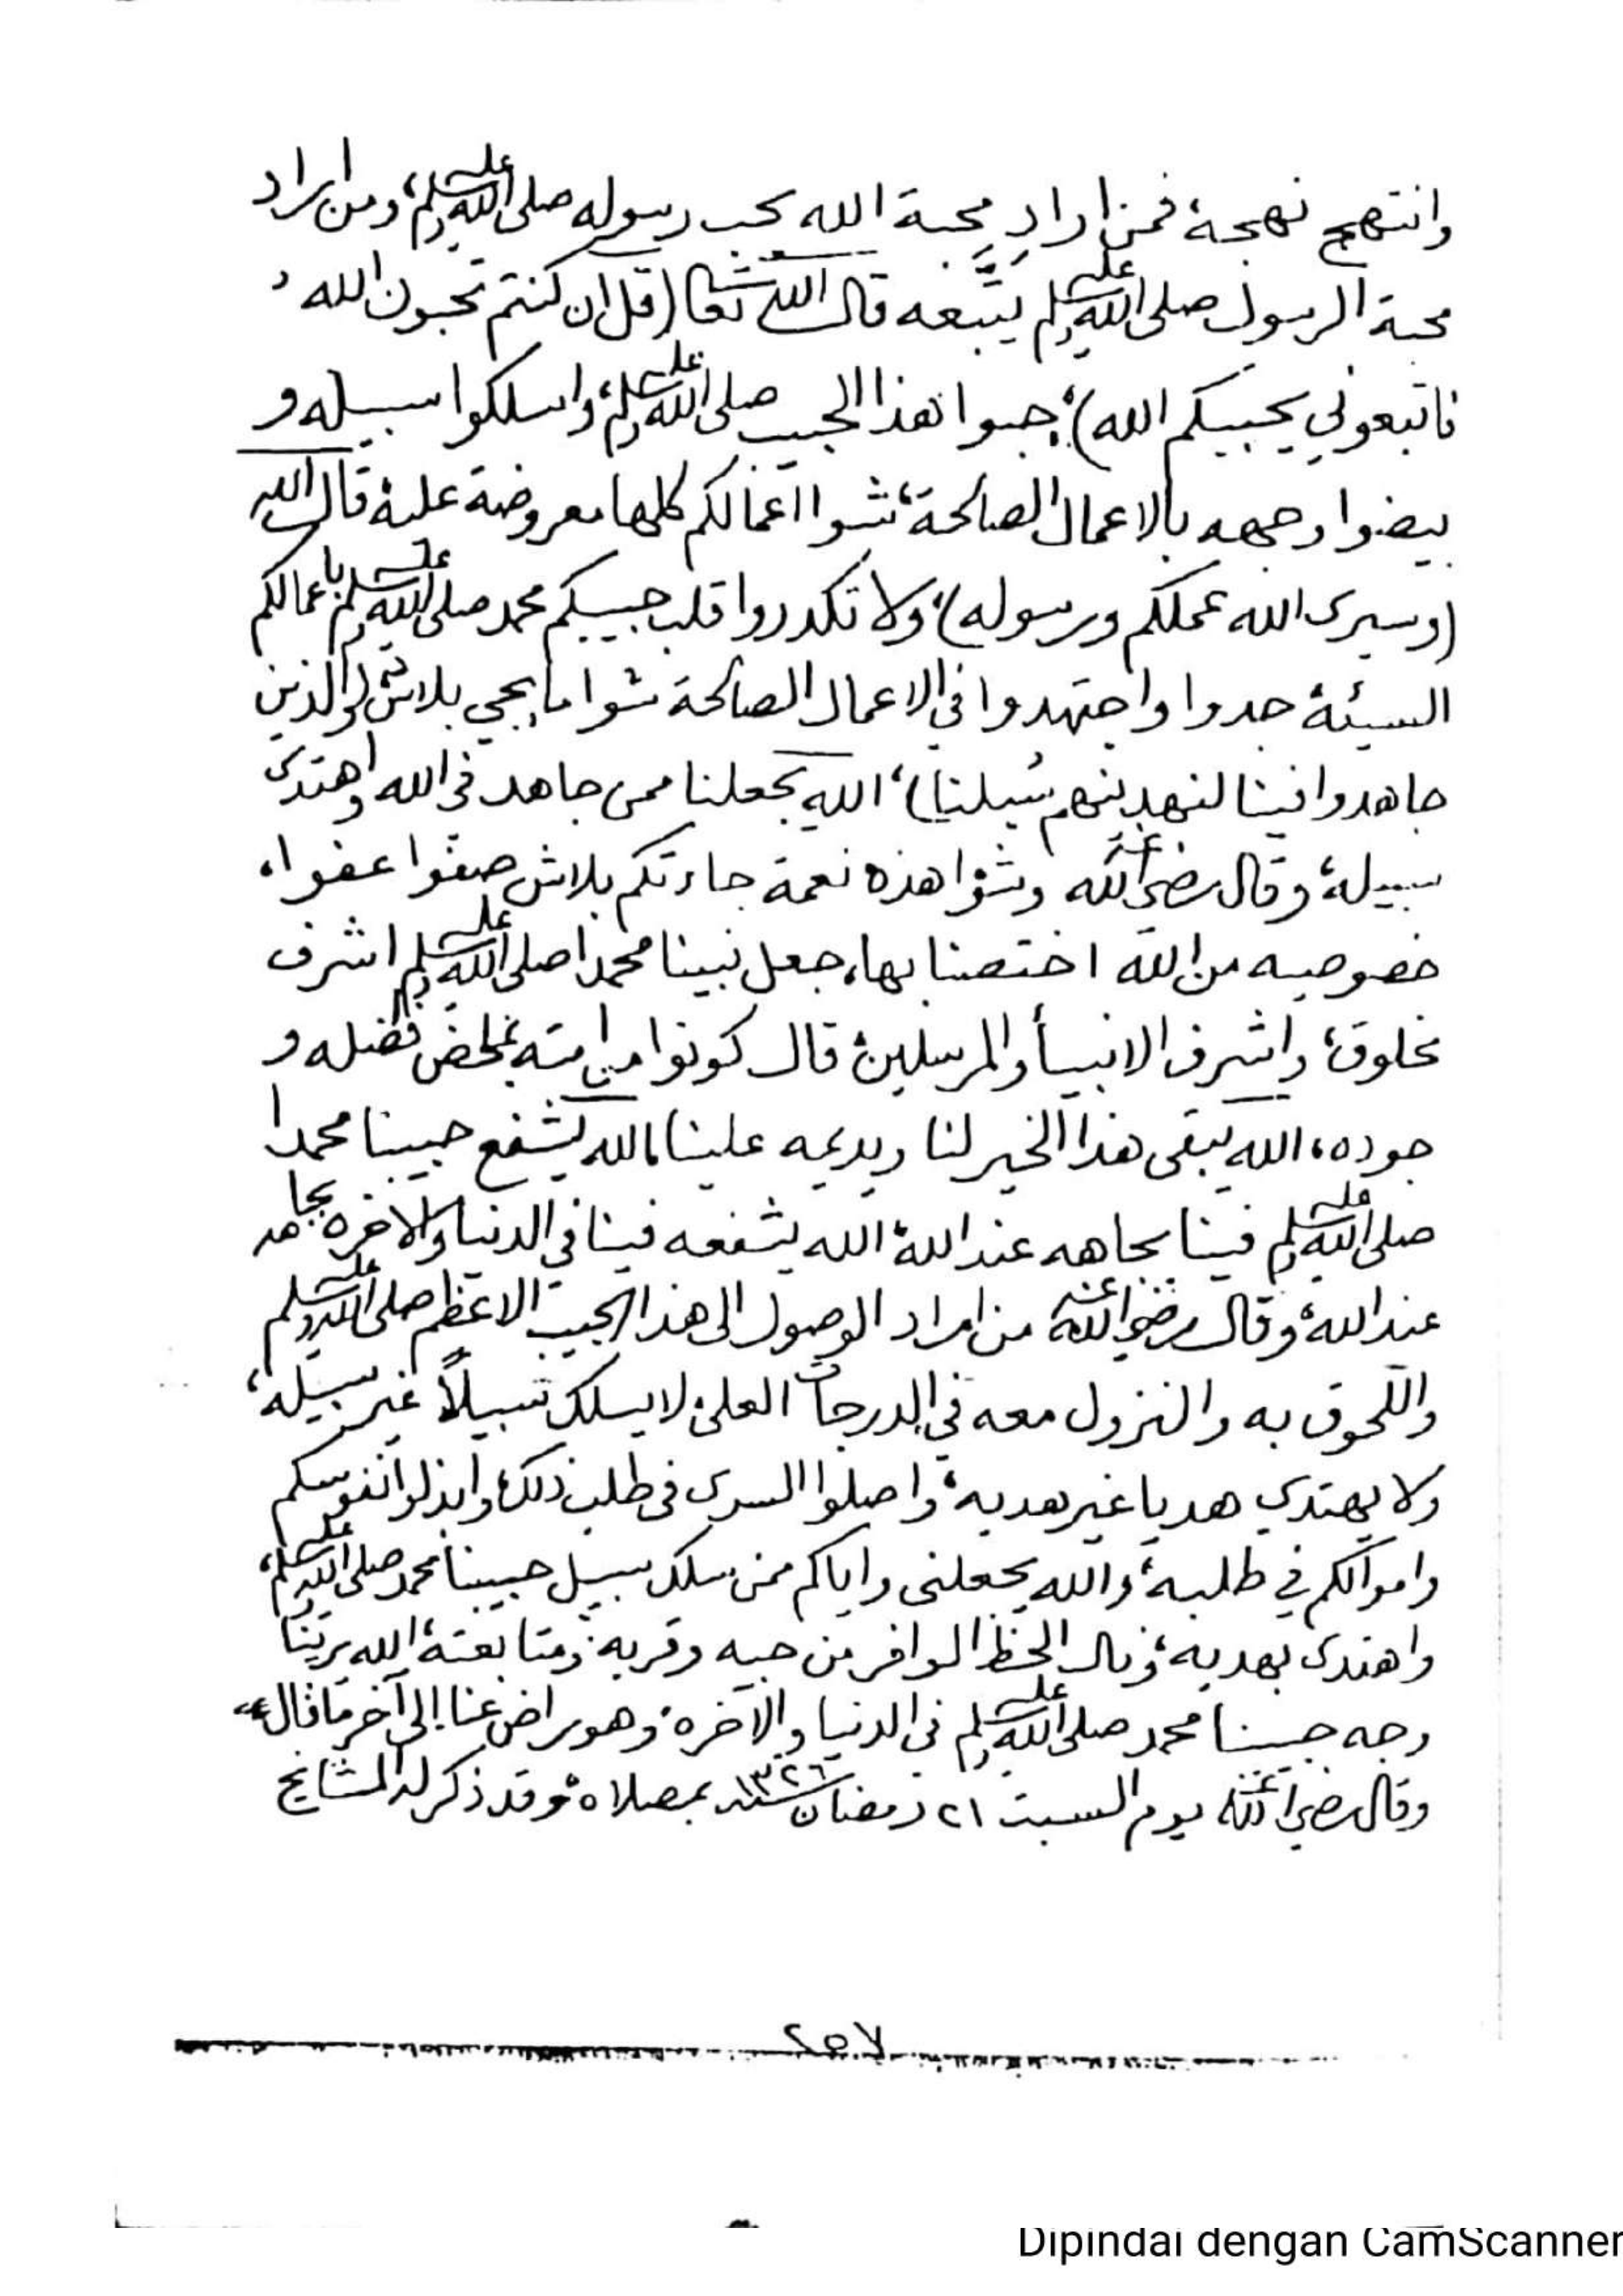 وانتهج نهجه، فمن اراد محبة الله يحب رسوله صلى الله عليه وسلم، ومن اراد
محبة الرسول صلى الله عليه وسلم يتّبعه قال الله تعالى (قل ان كنتم تحبون الله
فاتبعوني يحببكم الله)، حبوا هذا الحبيب صلى الله عليه وسلم، واسلكوا سبيله و
بيضوا وجهه بالاعمال الصالحة، شوا اعمالكم كلها معروضة عليه، قال الله
(وسيرى الله عملكم ورسوله)، ولا تكدروا قلب حبيبكم محمد صلى الله عليه وسلم باعمالكم
السيئة، جدوا واجتهدوا في الاعمال الصالحة شوا ما يجي بلاش والذين
جاهدوا فينا لنهدينهم سُبلنا)، الله يجعلنا ممن جاهد في الله واهتدى
سبيله، وقال رضي الله عنه وشوا هذه نعمة جاءتكم بلاش صفوا عفوا،
خصوصيه من الله اختصنا بها، جعل نبينا محمدا صلى الله عليه وسلم اشرف
مخلوق، واشرف الانبيأ والمرسلين، قال كونوا من امته بمحض فضله و
جوده، الله يبقى هذا الخير لنا ويديمه علينا، الله يشفع حبيبنا محمدا
صلى الله عليه وسلم فينا بجاهه عند الله، الله يشفعه فينا في الدنيا والاخره بجاهه
عند الله، وقال رضي الله عنه من اراد الوصول الى هذا الحبيب الاعظم صلى الله عليه وسلم
واللّحوق به والنزول معه في الدرجات العلى، لا يسلك سبيلاً غير سبيله،
ولا يهتدي هديا غير هديه، واصلوا السرى في طلب ذلك، وابذلوا انفوسكم
واموالكم في طلبه، والله يجعلنى واياكم ممن سلك سبيل حبيبنا محمد صلى الله عليه وسلم،
واهتدى بهديه، ونال الحظ الوافر من حبه وقربه، ومتابعته، الله يرينا
وجه حبيبنا محمد صلى الله عليه وسلم في الدنيا والآخره، وهو راض عنا، إلى آخر ما قال،،
وقال رضي الله عنه يوم السبت ٢١ رمضان سنة ١٣٢٦ بمصلاه، وقد ذكر له المشايخ
٢٥٧
Dipindai dengan CamScanner